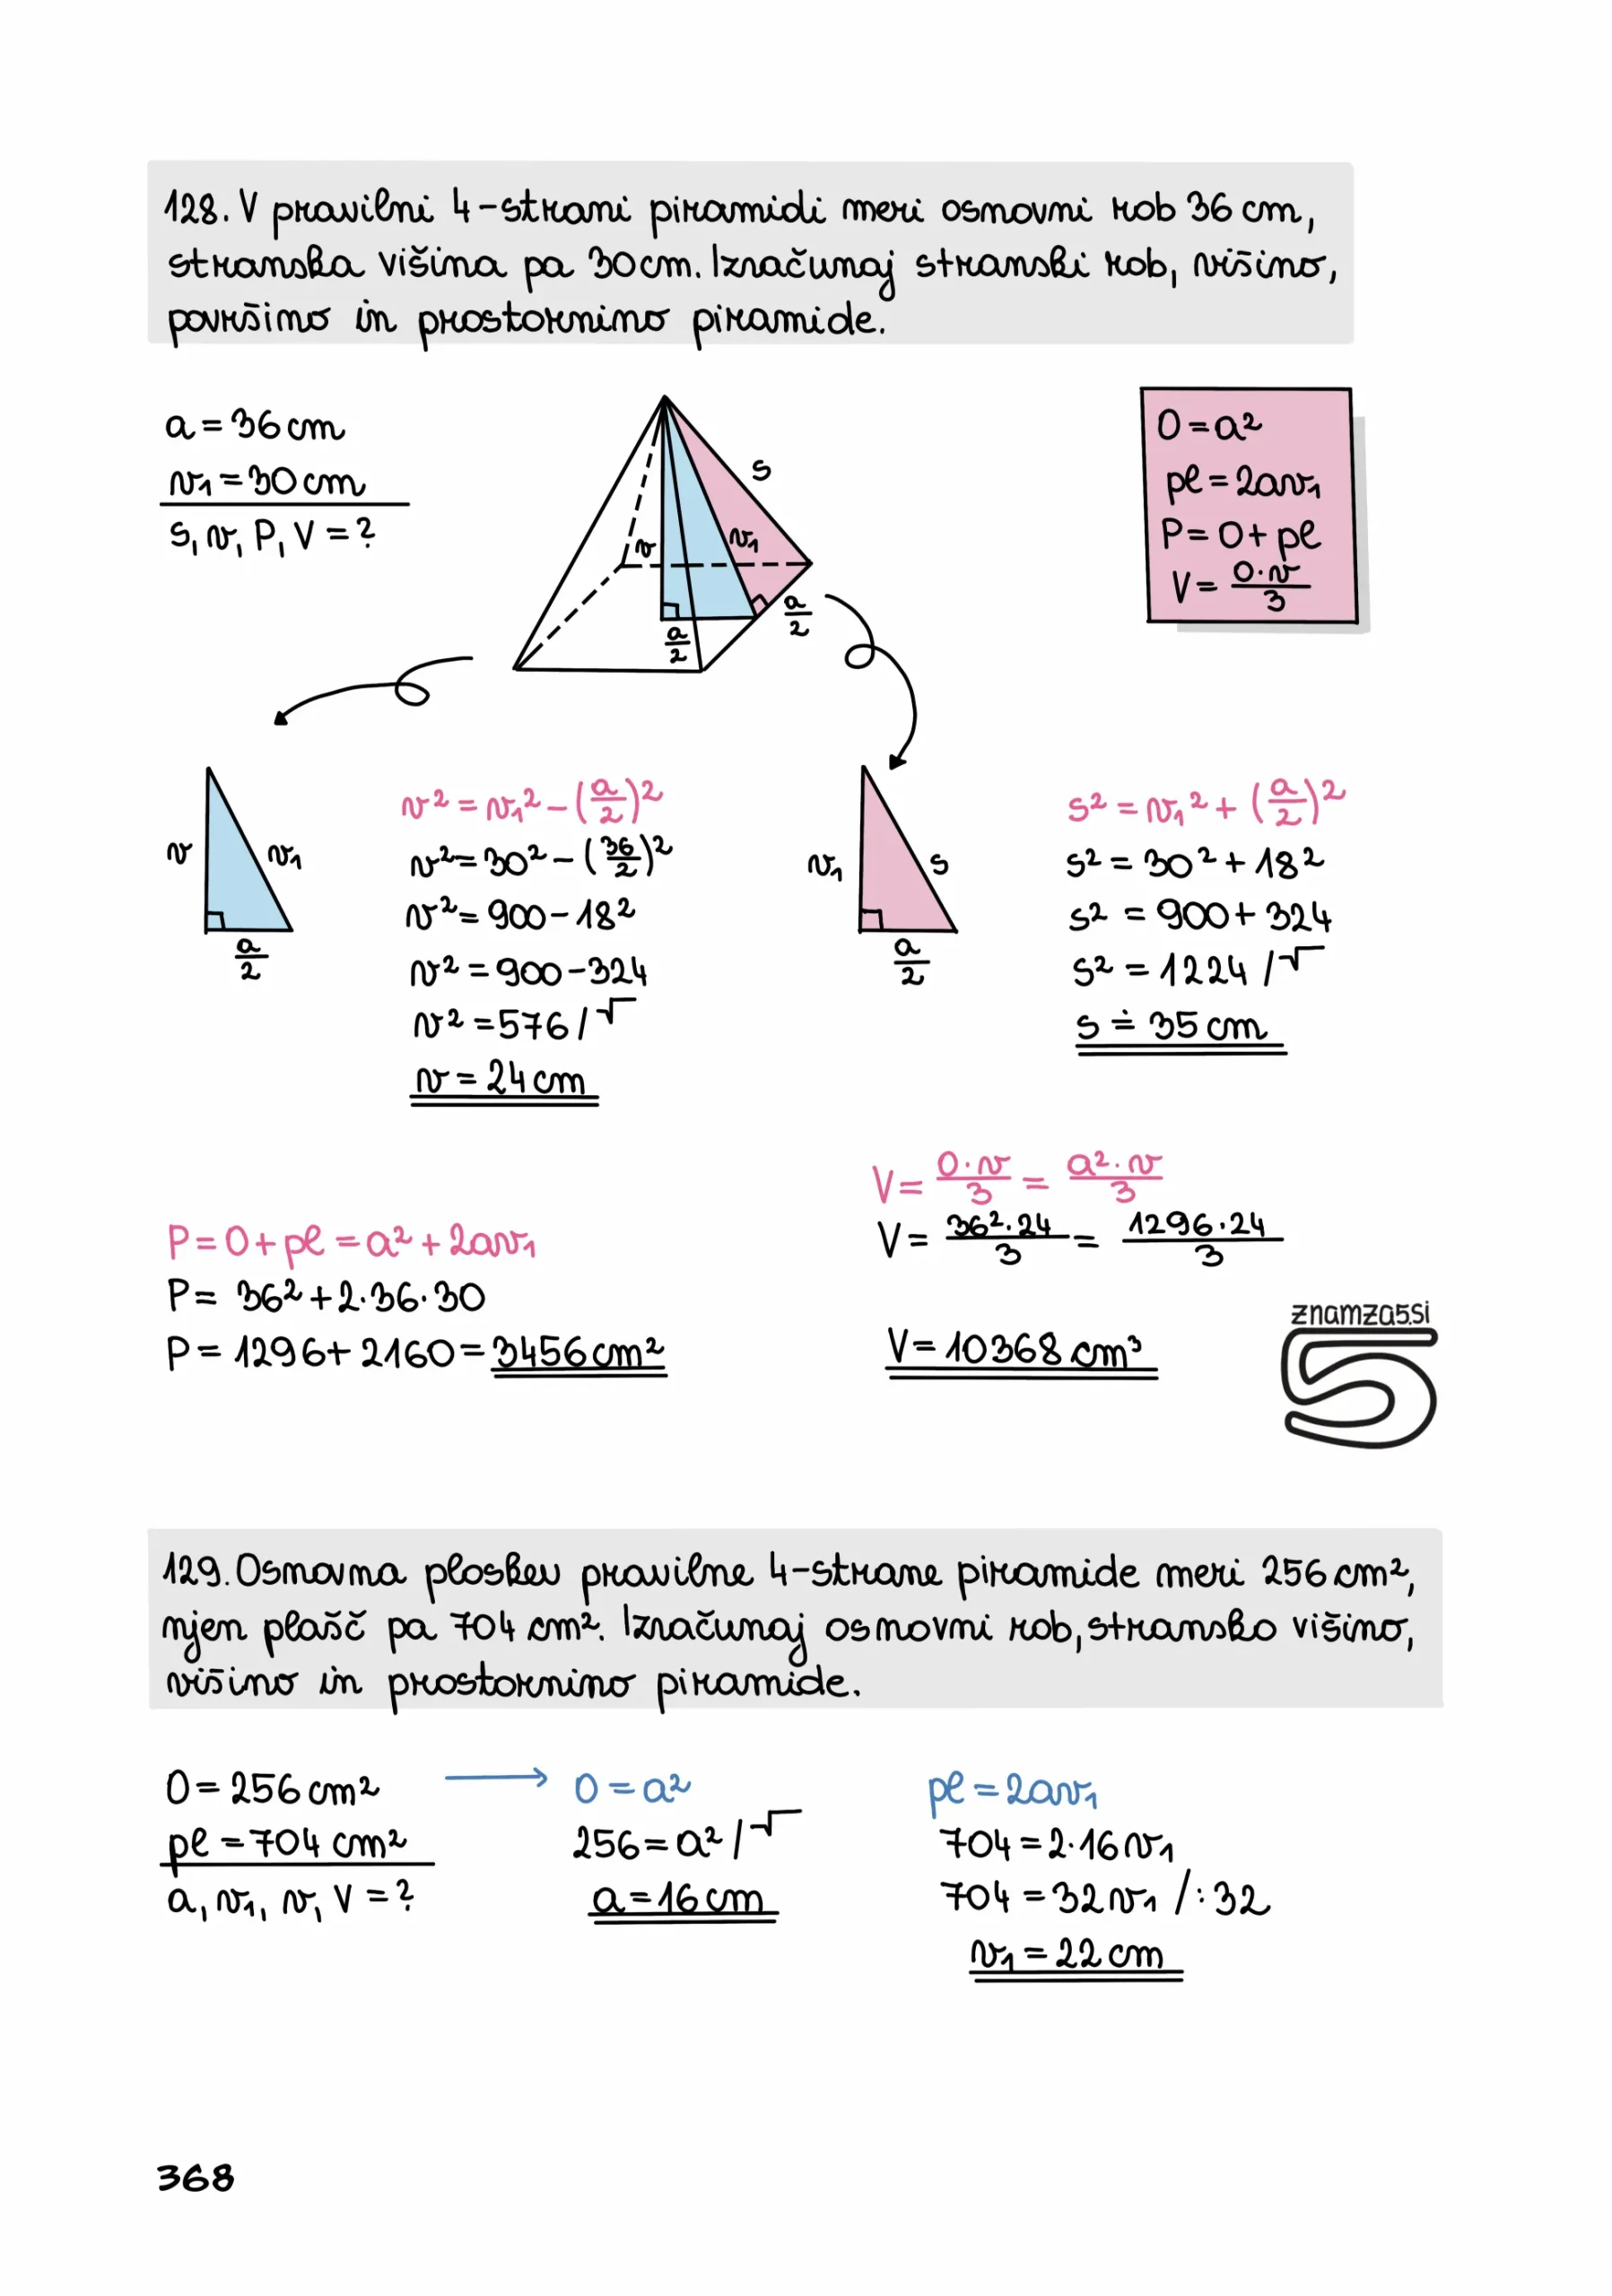 128. V pravilni 4-strani piramidi meri osnovni rob 36 cm,
stranska višina pa 30 cm. Izračunaj stranski rob, višino,
površino in prostornino piramide.
a = 36 cm
v₁ = 30 cm
s, v, P, V = ?
s
v
v₁
a/2
a/2
O = a²
pl = 2av₁
P = O + pl
V = O·v/3
v
v₁
a/2
v² = v₁² - (a/2)²
v² = 30² - (36/2)²
v² = 900 - 18²
v² = 900 - 324
v² = 576 /√
v = 24 cm
v₁
s
a/2
s² = v₁² + (a/2)²
s² = 30² + 18²
s² = 900 + 324
s² = 1224 /√
s ≐ 35 cm
P = O + pl = a² + 2av₁
P = 36² + 2·36·30
P = 1296 + 2160 = 3456 cm²
V = O·v/3 = a²·v/3
V = 36²·24/3 = 1296·24/3
V = 10368 cm³
znamza5.si
5
129. Osnovna ploskev pravilne 4-strane piramide meri 256 cm²,
njen plašč pa 704 cm². Izračunaj osnovni rob, stransko višino,
višino in prostornino piramide.
O = 256 cm²
pl = 704 cm²
a, v₁, v, V = ?
O = a²
256 = a² /√
a = 16 cm
pl = 2av₁
704 = 2·16v₁
704 = 32v₁ /:32
v₁ = 22 cm
368